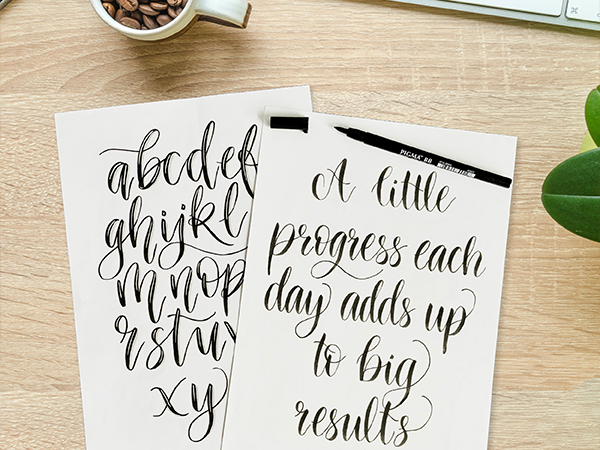 abcdef
ghijkl
mnop
rstuv
xy
PIGMA BB
A little
progress each
day adds up
to big
results